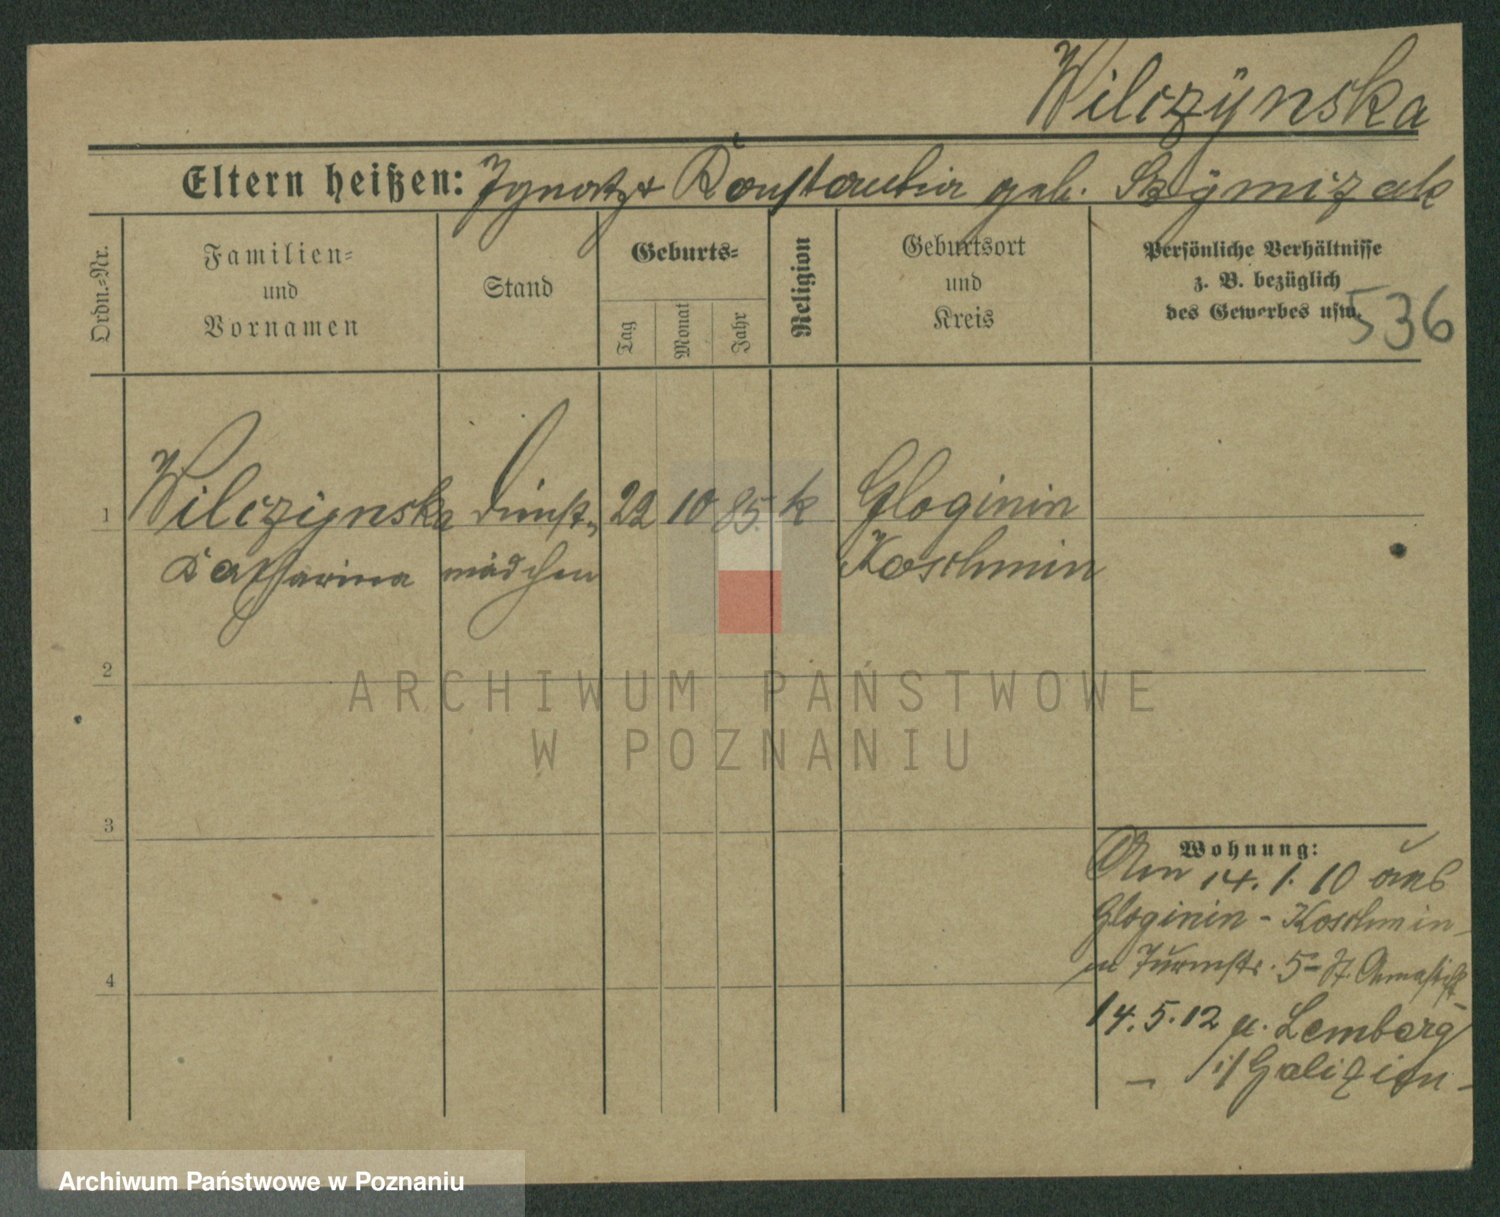 Wilczÿnska
Eltern heißen: Ignatz & Konstantia geb. Szÿmczak
Ordn.-Nr.
Familien- und Vornamen
Stand
Geburts-
Tag
Monat
Jahr
Religion
Geburtsort und Kreis
Persönliche Verhältnisse
z. B. bezüglich
des Gewerbes usw.
536
1 Wilczÿnska Dienst- 22 10 85. k Gloginin
Katharina mädchen Koschmin
2
3
4
Wohnung:
Am 14.1.10 aus
Gloginin - Koschmin
n Turmstr. 5
14.5.12 n. Lemberg
i/Galizien -
ARCHIWUM PAŃSTWOWE
W POZNANIU
Archiwum Państwowe w Poznaniu